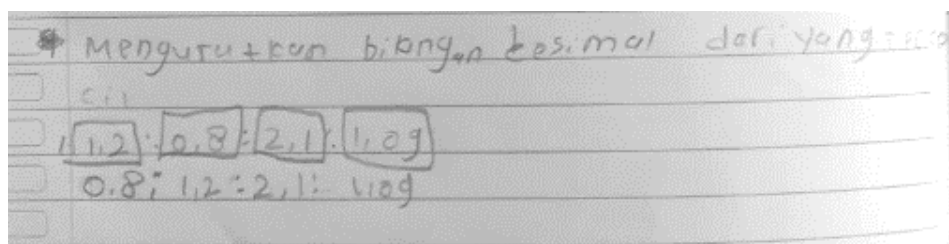 Mengurutkan bilangan desimal dari yang
cil
1,2 : 0,8 : 2,1 : 1,09
0.8; 1,2 : 2,1 : 1,09